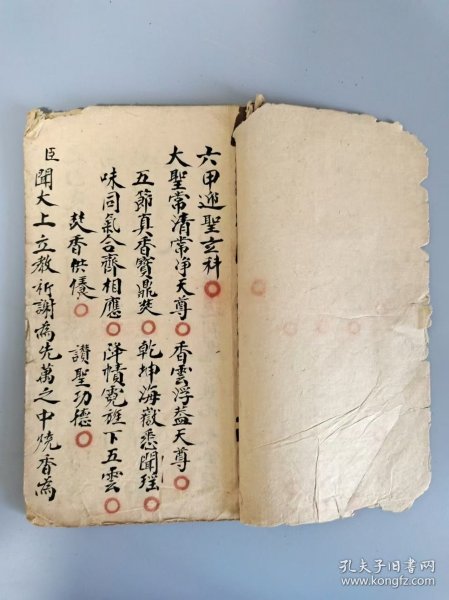 六甲迎聖立科
大聖常清常净天尊 香雲浮蓋天尊
五節真香寶鼎焚 乾坤海嶽悉聞瑶
味同氣合齊相應 降幘霓旌下五雲
焚香供養 讃聖功德
臣 聞大上立教祈謝為先萬之中燒香為
孔夫子旧书网
www.kongfz.com